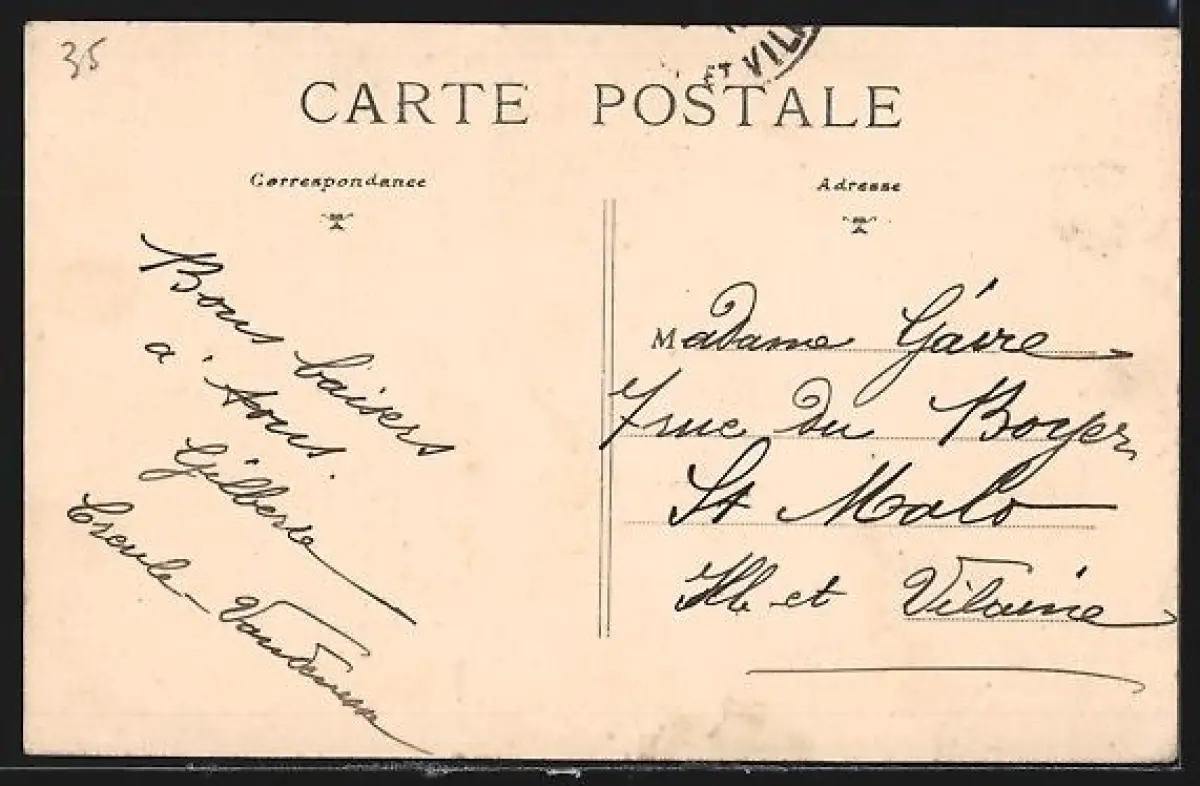 35
ET VIL
CARTE POSTALE
Correspondance
Adresse
Bons baisers
a' tous.
Gilberte
Madame Gávre
7 rue du Boyer
St Malo
Ille et Vilaine